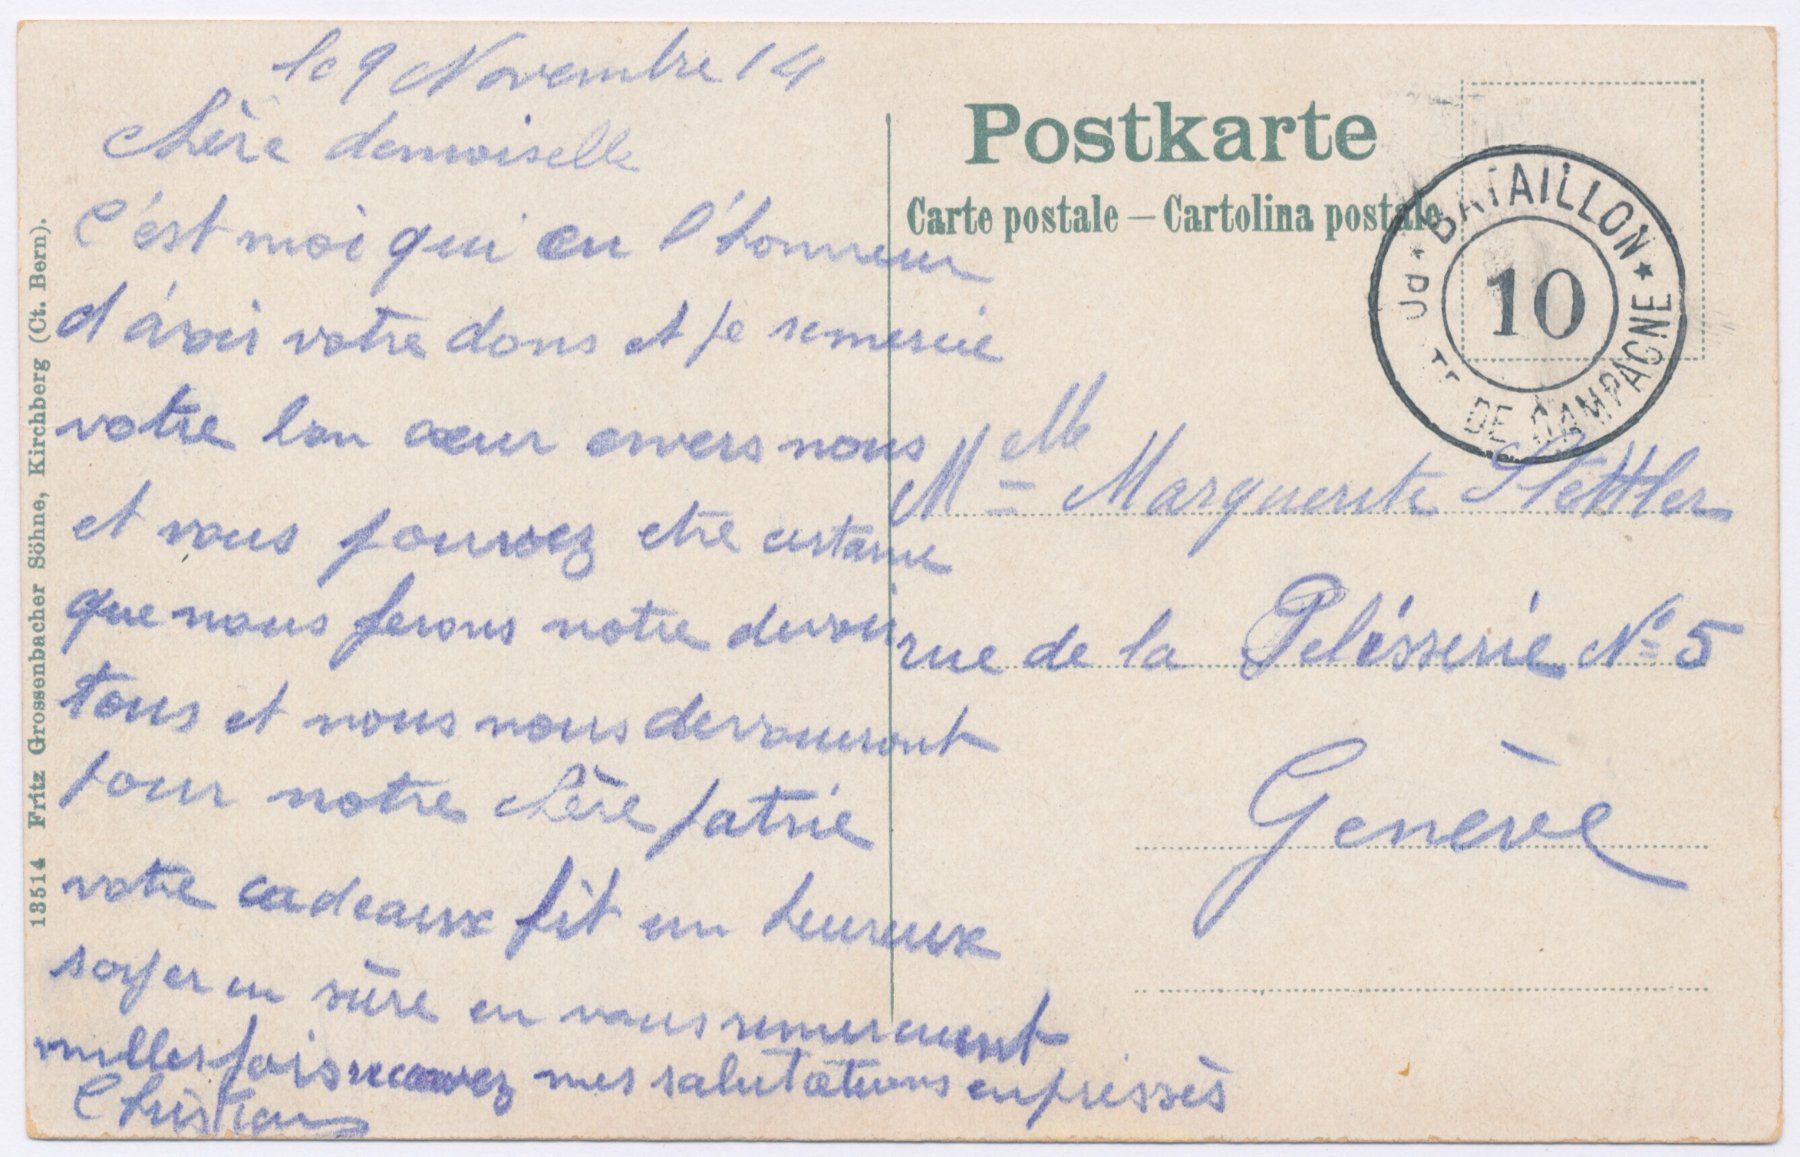 le 9 Novembre 14
chère demoiselle
C'est moi qui eu l'honneur
d'avoir votre dons et je remercie
votre bon coeur envers nous
et vous pouvez etre certaine
que nous ferons notre devoir
tous et nous nous devoueront
pour notre chère patrie
votre cadeaux fit un heureux
soyer en sûre en vous remerciant
miller fois recevez mes salutations enpressès
Christian
Postkarte
Carte postale — Cartolina postale
BATAILLON
10
DE CAMPAGNE
Melle Marguerite Stettler
rue de la Pelésserie No 5
Genève
13514 Fritz Grossenbacher Söhne, Kirchberg (Ct. Bern).